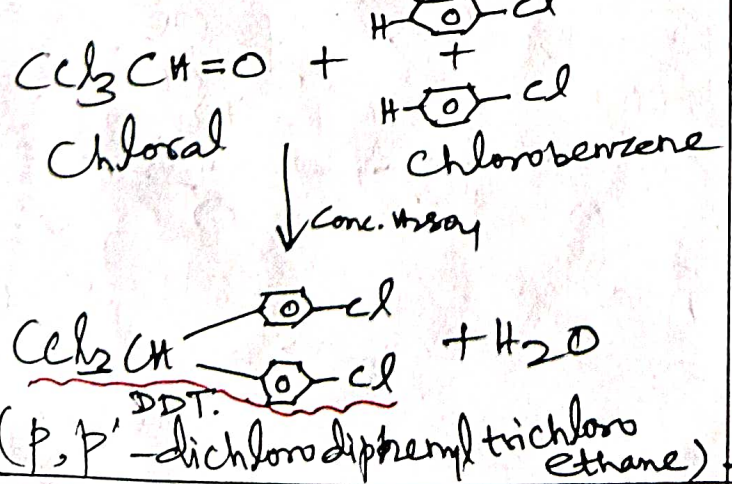 H- -Cl
CCl3CH=O + +
H- -Cl
Chloral
Chlorobenzene
Conc. H2SO4
-Cl
CCl3CH + H2O
-Cl
DDT.
(p, p' -dichlorodiphenyl trichloro
ethane)